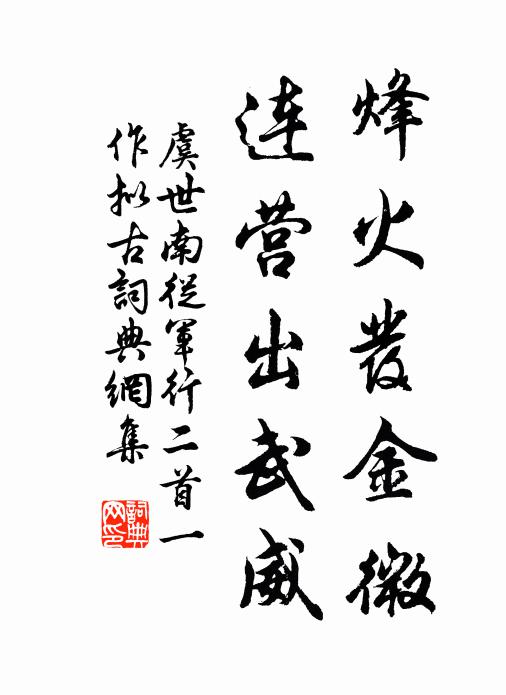 烽火發金微
连营出武威
虞世南從軍行二首一
作拟古詞典網集
詞典网印